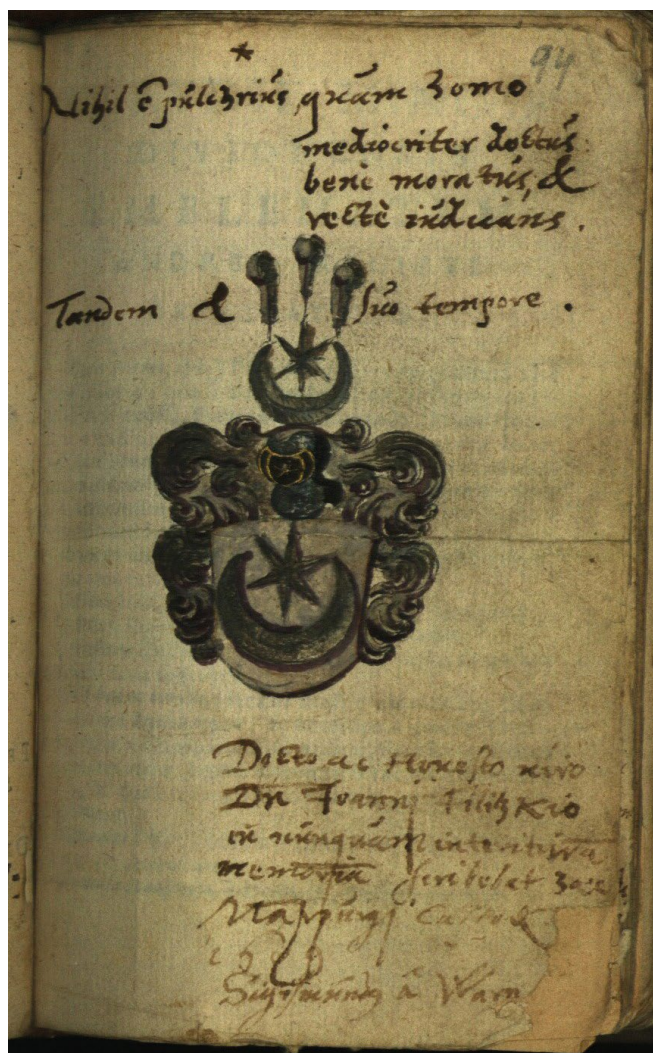 94
Nihil ē pulchrius, quam homo
mediocriter doctus
bene moratus, &
rectè iudicans.
Tandem & suo tempore.
Docto ac Honesto viro
Dn Joanni
in nunquam interituram
memoriam scribebat haec
Marpurgi
Sigismundus à